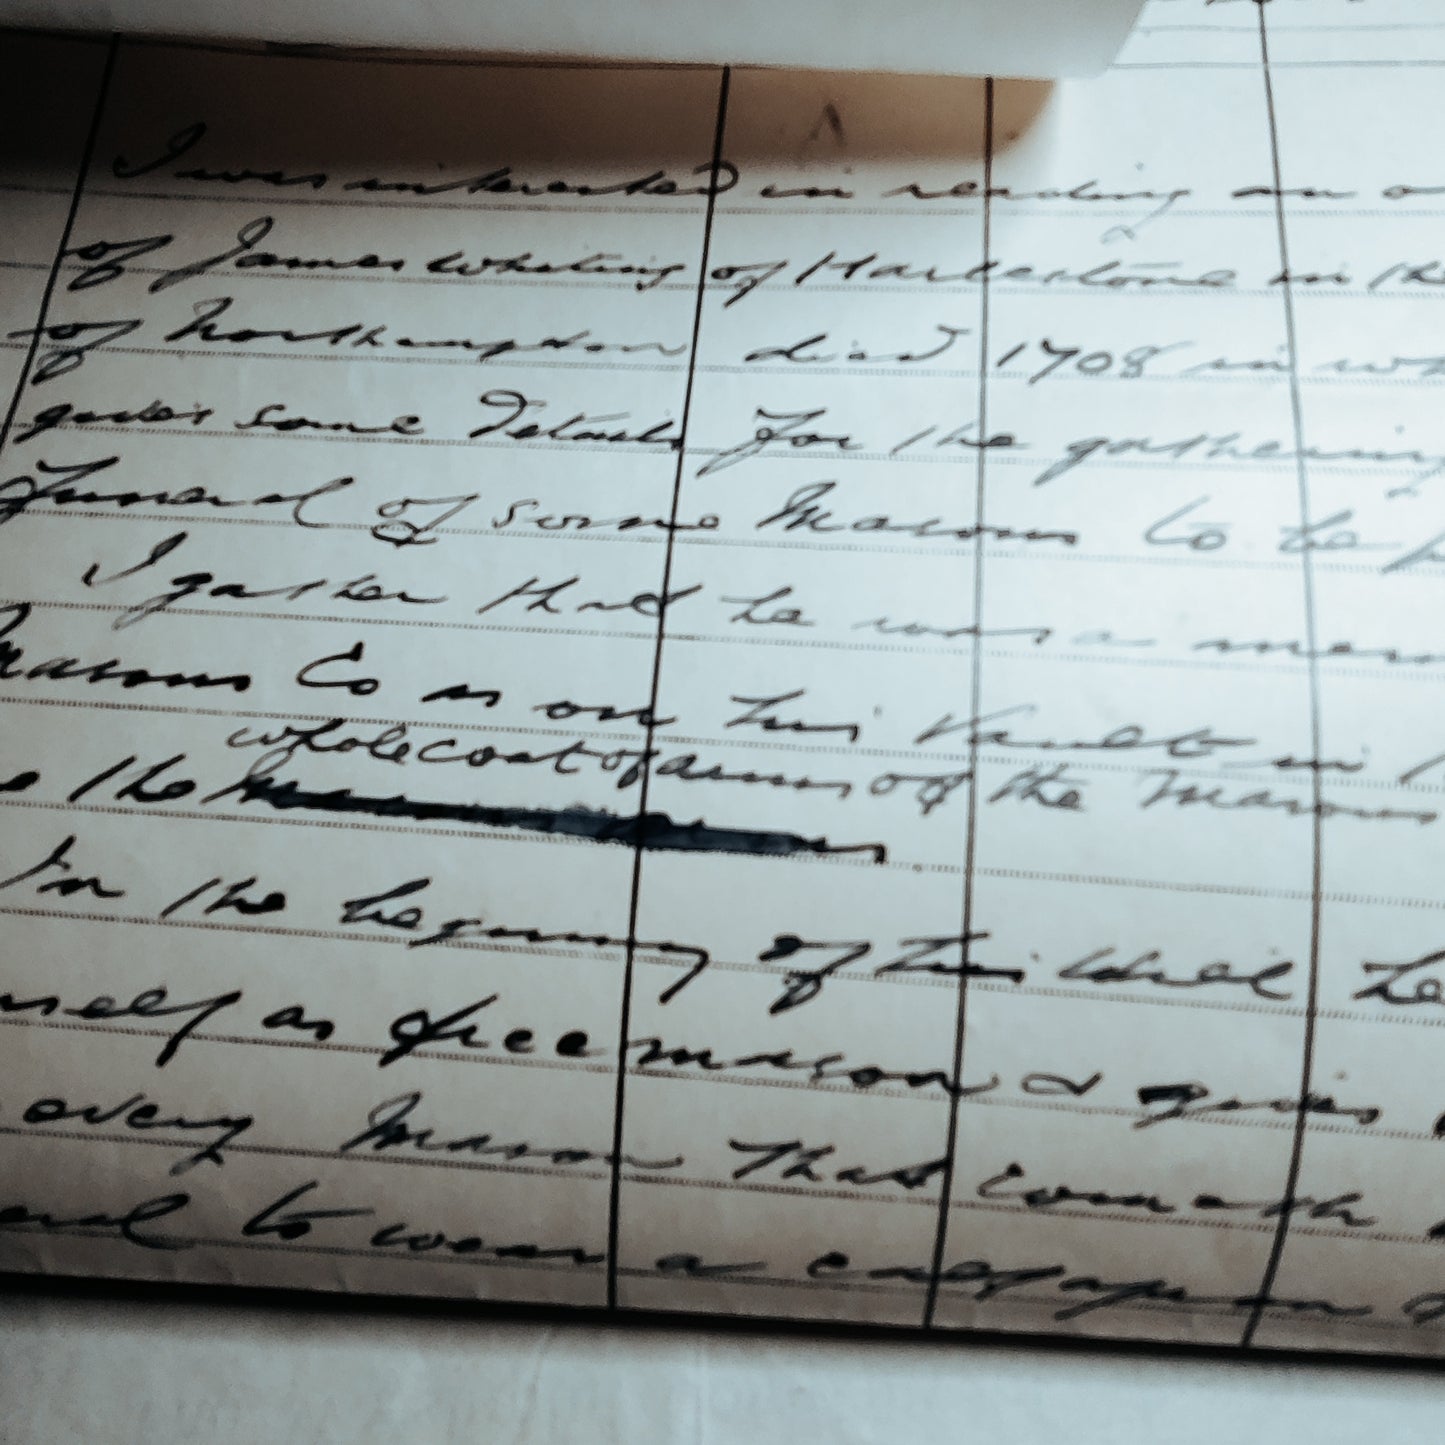 I was interested in reading an o
of James Whiting of Harlestone in the
of Northampton died 1708 in wh
gives some details for the gathering
Funeral of some Masons to be
I gather that he was a mem
Masons Co as on his Vault in
whole coat of arms of the Masons
the
In the beginning of his Will he
mself as freemason & gives
every Mason that cometh
to wear a